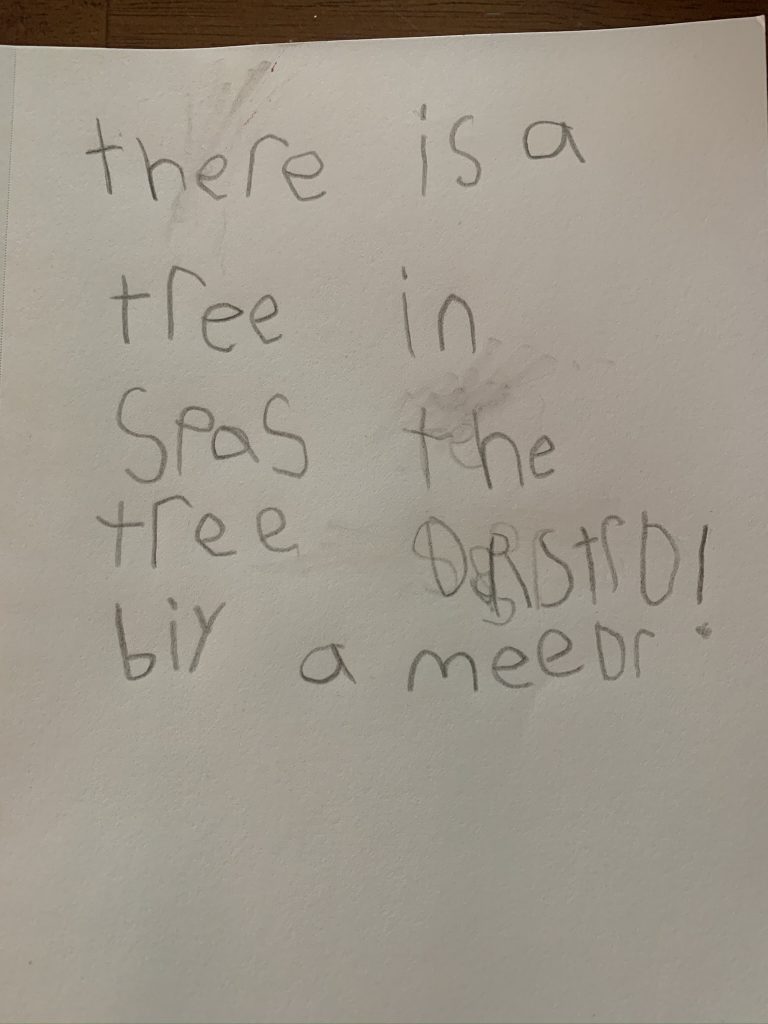 there is a
tree in
Spas the
tree DRStrDI
biy a meeDr.